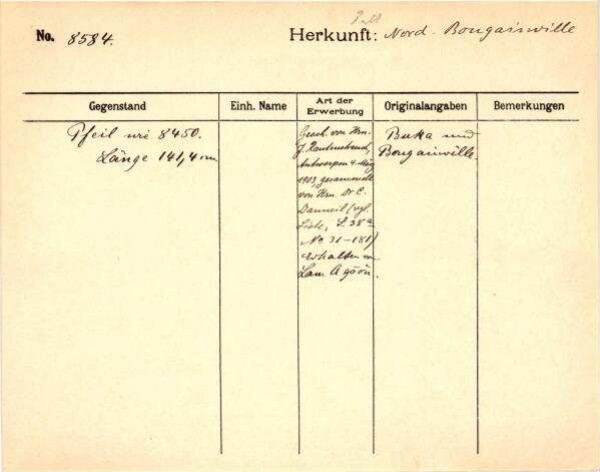 No. 8584.
Herkunft: Nord-Bougainville
Gegenstand
Einh. Name
Art der Erwerbung
Originalangaben
Bemerkungen
Pfeil wie 8450.
Länge 141,4 cm
Gesch. von Hrn.
J.
Antwerpen 4. März
1903, gesammelt
von Hrn. Dr C.
Danneil (vgl.
Liste, L 38a
No 31-181)
erhalten
Buka und
Bougainville.